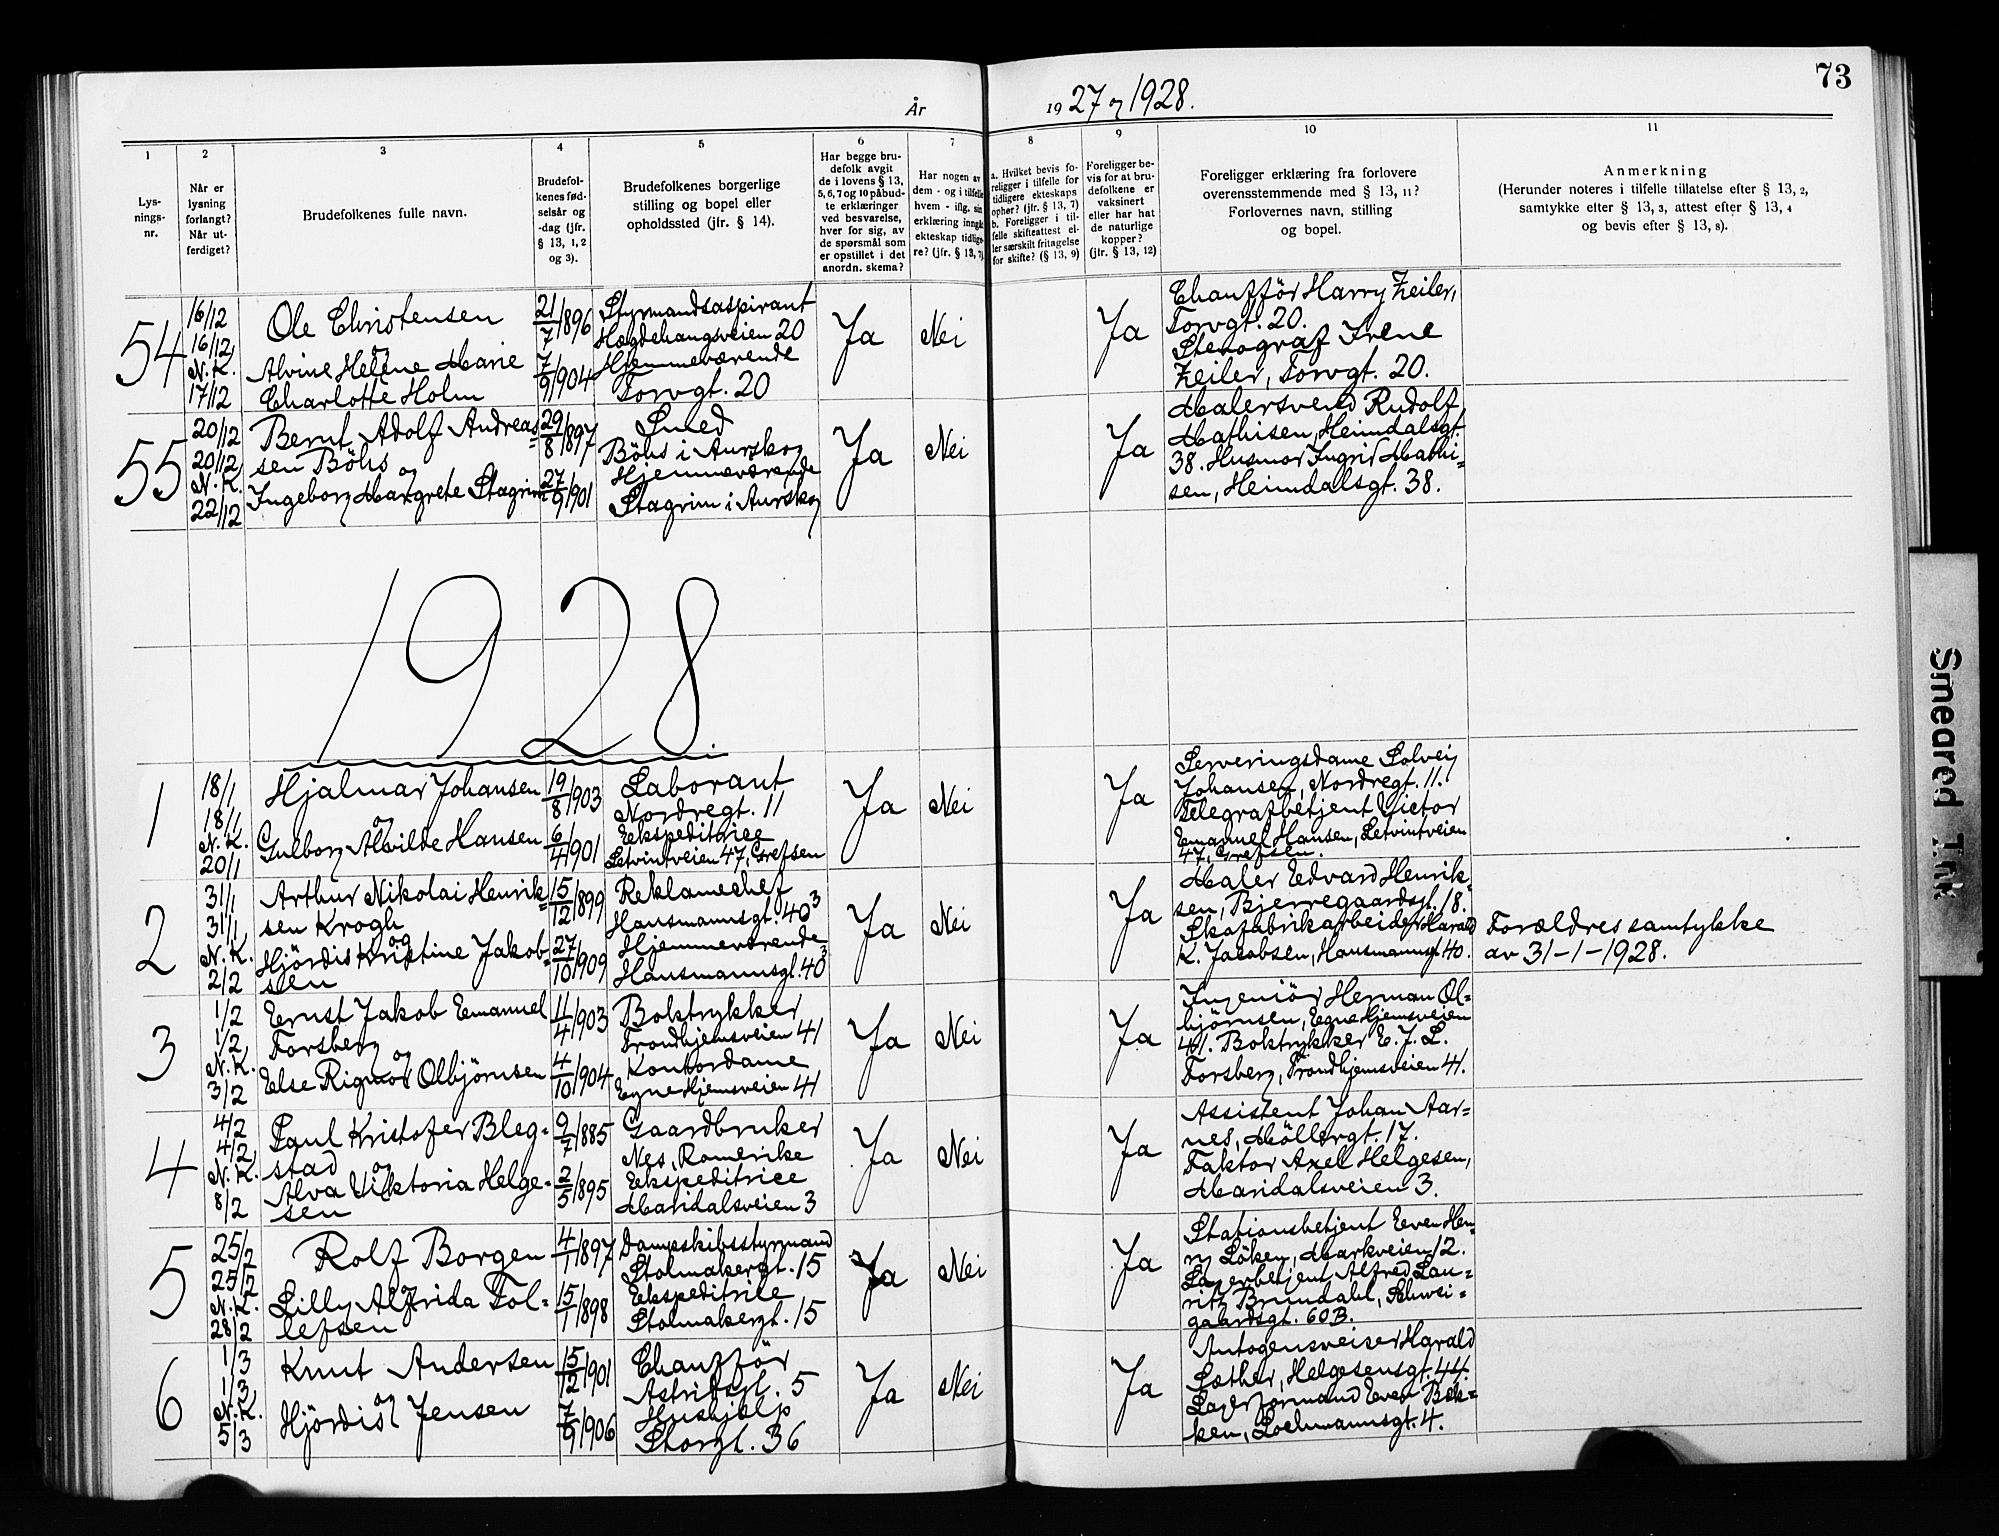 73
År 1927 og 1928.
1 2 3 4 5 6 7 8 9 10 11
Lys-
nings-
nr.
Når er
lysning
forlangt?
Når ut-
ferdiget?
Brudefolkenes fulle navn.
Brudefol-
kenes fød-
selsår og
-dag (jfr.
§ 13, 1, 2
og 3).
Brudefolkenes borgerlige
stilling og bopel eller
opholdssted (jfr. § 14).
Har begge bru-
defolk avgit
de i lovens § 13,
5, 6, 7 og 10 påbud-
te erklæringer
ved besvarelse,
hver for sig, av
de spørsmål som
er opstillet i det
anordn. skema?
Har nogen av
dem - og i tilfelle
hvem - iflg. sin
erklæring inngå
ekteskap tidlige-
re? (jfr. § 13, 7)
a. Hvilket bevis fo-
religger i tilfelle for
tidligere ekteskaps
ophør? (jfr. § 13, 7)
b. Foreligger i til-
felle skifteattest el-
ler særskilt fritagelse
for skifte? (§ 13, 9)
Foreligger be-
vis for at bru-
defolkene er
vaksinert
eller har hat
de naturlige
kopper?
(jfr. § 13, 12)
Foreligger erklæring fra forlovere
overensstemmende med § 13, 11?
Forlovernes navn, stilling
og bopel.
Anmerkning
(Herunder noteres i tilfelle tillatelse efter § 13, 2,
samtykke efter § 13, 3, attest efter § 13, 4
og bevis efter § 13, 8).
54
16/12
16/12
N.K.
17/12
Ole Christensen
og
Alvine Helene Marie
Charlotte Holm
21/7 1896
7/9 1904
Styrmandsaspirant
Hegdehaugsveien 20
Hjemmeværende
Torvgt. 20
Ja
Nei
Ja
Chaufför Harry Zeiler,
Torvgt. 20.
Stenograf Irene
Zeiler, Torvgt. 20.
55
20/12
20/12
N.K.
22/12
Bernt Adolf Andreas=
sen Böhs
og
Ingeborg Margrete Stagrim
29/8 1897
27/9 1901
Smed
Böhs i Aurskog
Hjemmeværende
Stagrim i Aurskog
Ja
Nei
Ja
Malersvend Rudolf
Mathisen, Heimdalsgt.
38. Husmor Ingrid Mathi=
sen, Heimdalsgt. 38.
1928
1
18/1
18/1
N.K.
20/1
Hjalmar Johansen
og
Gulborg Alvilde Hansen
19/8 1903
6/4 1901
Laborant
Nordregt. 11
Ekspeditrice
Letvintveien 47, Grefsen
Ja
Nei
Ja
Serveringsdame Solveig
Johansen, Nordregt. 11.
Telegrafbetjent Victor
Emanuel Hansen, Letvintveien
47, Grefsen.
2
31/1
31/1
N.K.
2/2
Arthur Nikolai Henrik=
sen Krogh
og
Hjördis Kristine Jakob=
sen
15/12 1899
27/10 1909
Reklamechef
Hausmannsgt. 40³
Hjemmeværende
Hausmannsgt. 40³
Ja
Nei
Ja
Maler Edvard Henrik=
sen, Bjerregaardsgt. 18.
Skofabrikarbeider Harald
K. Jacobsen, Hausmannsgt. 40.
Forældres samtykke
av 31-1-1928.
3
1/2
1/2
N.K.
3/2
Ernst Jakob Emanuel
Forsberg
og
Else Rigmor Olbjörnsen
11/4 1903
4/10 1904
Boktrykker
Trondhjemsveien 41
Kontordame
Egne Hjemsveien 41
Ja
Nei
Ja
Ingeniör Herman Ol=
björnsen, Egne Hjemsveien
41. Boktrykker E. J. L.
Forsberg, Trondhjemsveien 41.
4
4/2
4/2
N.K.
8/2
Paul Kristofer Bleg=
stad
og
Alva Viktoria Helge=
sen
9/7 1885
2/5 1895
Gaardbruker
Nes, Romerike
Ekspeditrice
Maridalsveien 3
Ja
Nei
Ja
Assistent Johan Aar=
nes, Möllergt. 17.
Faktor Axel Helgesen,
Maridalsveien 3.
5
25/2
25/2
N.K.
28/2
Rolf Borgen
og
Lilly Alfrida Tol=
lefsen
4/1 1897
15/1 1898
Dampskibsstyrmand
Stolmakergt. 15
Ekspeditrice
Stolmakergt. 15
Ja
Nei
Ja
Stationsbetjent Even Hen=
ry Löken, Markveien 12.
Lagerbetjent Alfred Lau=
ritz Brundahl, Schwei=
gaardsgt. 60B.
6
1/3
1/3
N.K.
5/3
Knut Andersen
og
Hjördis Jensen
15/12 1901
7/9 1906
Chaufför
Astridsgt. 5
Hushjælp
Storgt. 36
Ja
Nei
Ja
Autogensveiser Harald
Lother, Helgesensgt. 44.
Lagerformand Even Bak=
ken, Loehmannsgt. 4.
Smeared Ink